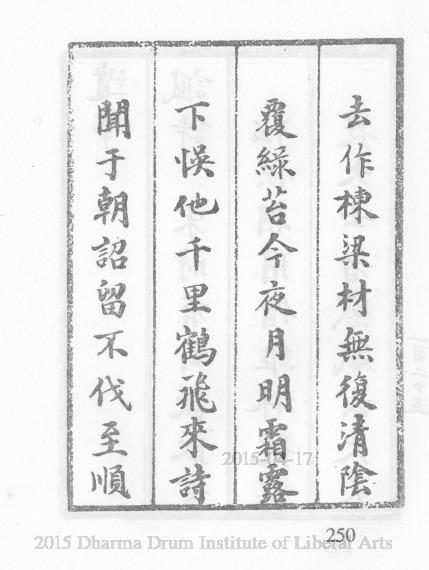 去作棟梁材無復清陰
覆綠苔今夜月明霜露
下悮他千里鶴飛來詩
聞于朝詔留不伐至順
2015-04-17
250
2015 Dharma Drum Institute of Liberal Arts